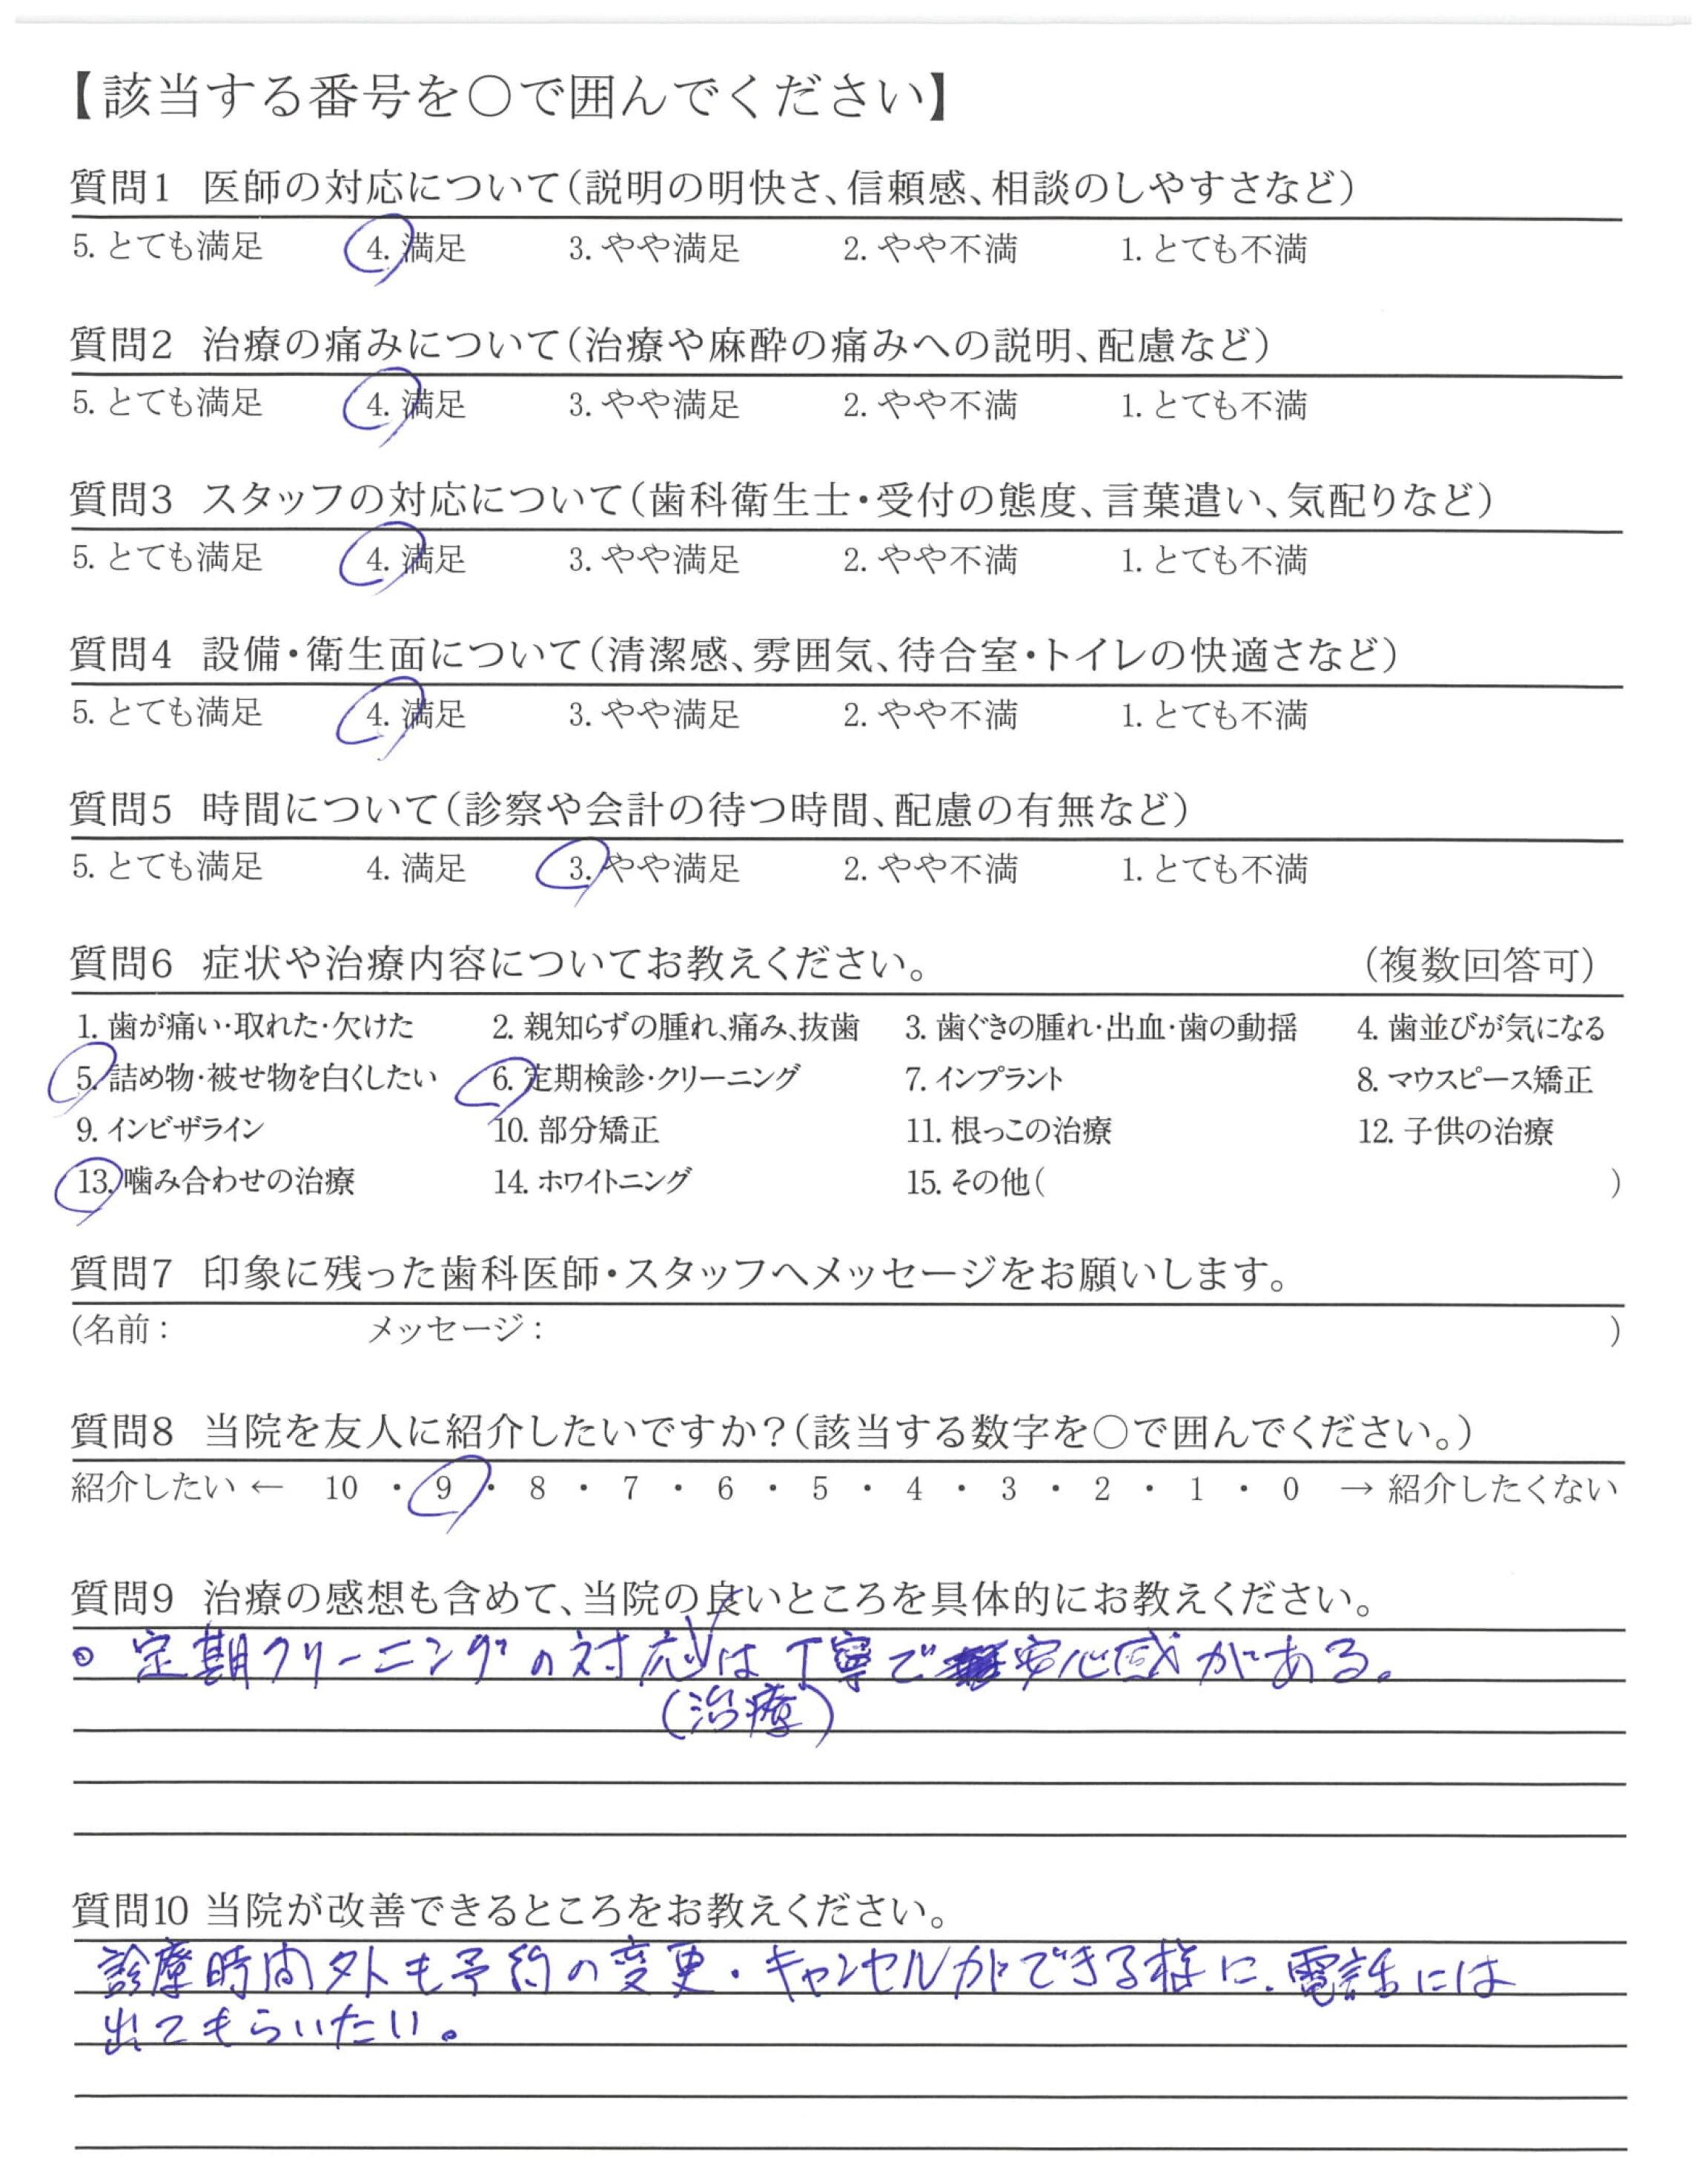 【該当する番号を○で囲んでください】
質問1 医師の対応について(説明の明快さ、信頼感、相談のしやすさなど)
5. とても満足 4. 満足 3. やや満足 2. やや不満 1. とても不満
質問2 治療の痛みについて(治療や麻酔の痛みへの説明、配慮など)
5. とても満足 4. 満足 3. やや満足 2. やや不満 1. とても不満
質問3 スタッフの対応について(歯科衛生士・受付の態度、言葉遣い、気配りなど)
5. とても満足 4. 満足 3. やや満足 2. やや不満 1. とても不満
質問4 設備・衛生面について(清潔感、雰囲気、待合室・トイレの快適さなど)
5. とても満足 4. 満足 3. やや満足 2. やや不満 1. とても不満
質問5 時間について(診察や会計の待つ時間、配慮の有無など)
5. とても満足 4. 満足 3. やや満足 2. やや不満 1. とても不満
質問6 症状や治療内容についてお教えください。 (複数回答可)
1. 歯が痛い・取れた・欠けた 2. 親知らずの腫れ、痛み、抜歯 3. 歯ぐきの腫れ・出血・歯の動揺 4. 歯並びが気になる
5. 詰め物・被せ物を白くしたい 6. 定期検診・クリーニング 7. インプラント 8. マウスピース矯正
9. インビザライン 10. 部分矯正 11. 根っこの治療 12. 子供の治療
13. 噛み合わせの治療 14. ホワイトニング 15. その他( )
質問7 印象に残った歯科医師・スタッフへメッセージをお願いします。
(名前: メッセージ: )
質問8 当院を友人に紹介したいですか?(該当する数字を○で囲んでください。)
紹介したい ← 10 ・ 9 ・ 8 ・ 7 ・ 6 ・ 5 ・ 4 ・ 3 ・ 2 ・ 1 ・ 0 → 紹介したくない
質問9 治療の感想も含めて、当院の良いところを具体的にお教えください。
◎ 定期クリーニングの対応は丁寧で安心感がある。
(治療)
質問10 当院が改善できるところをお教えください。
診療時間外も予約の変更・キャンセルができる様に、電話には
出てもらいたい。